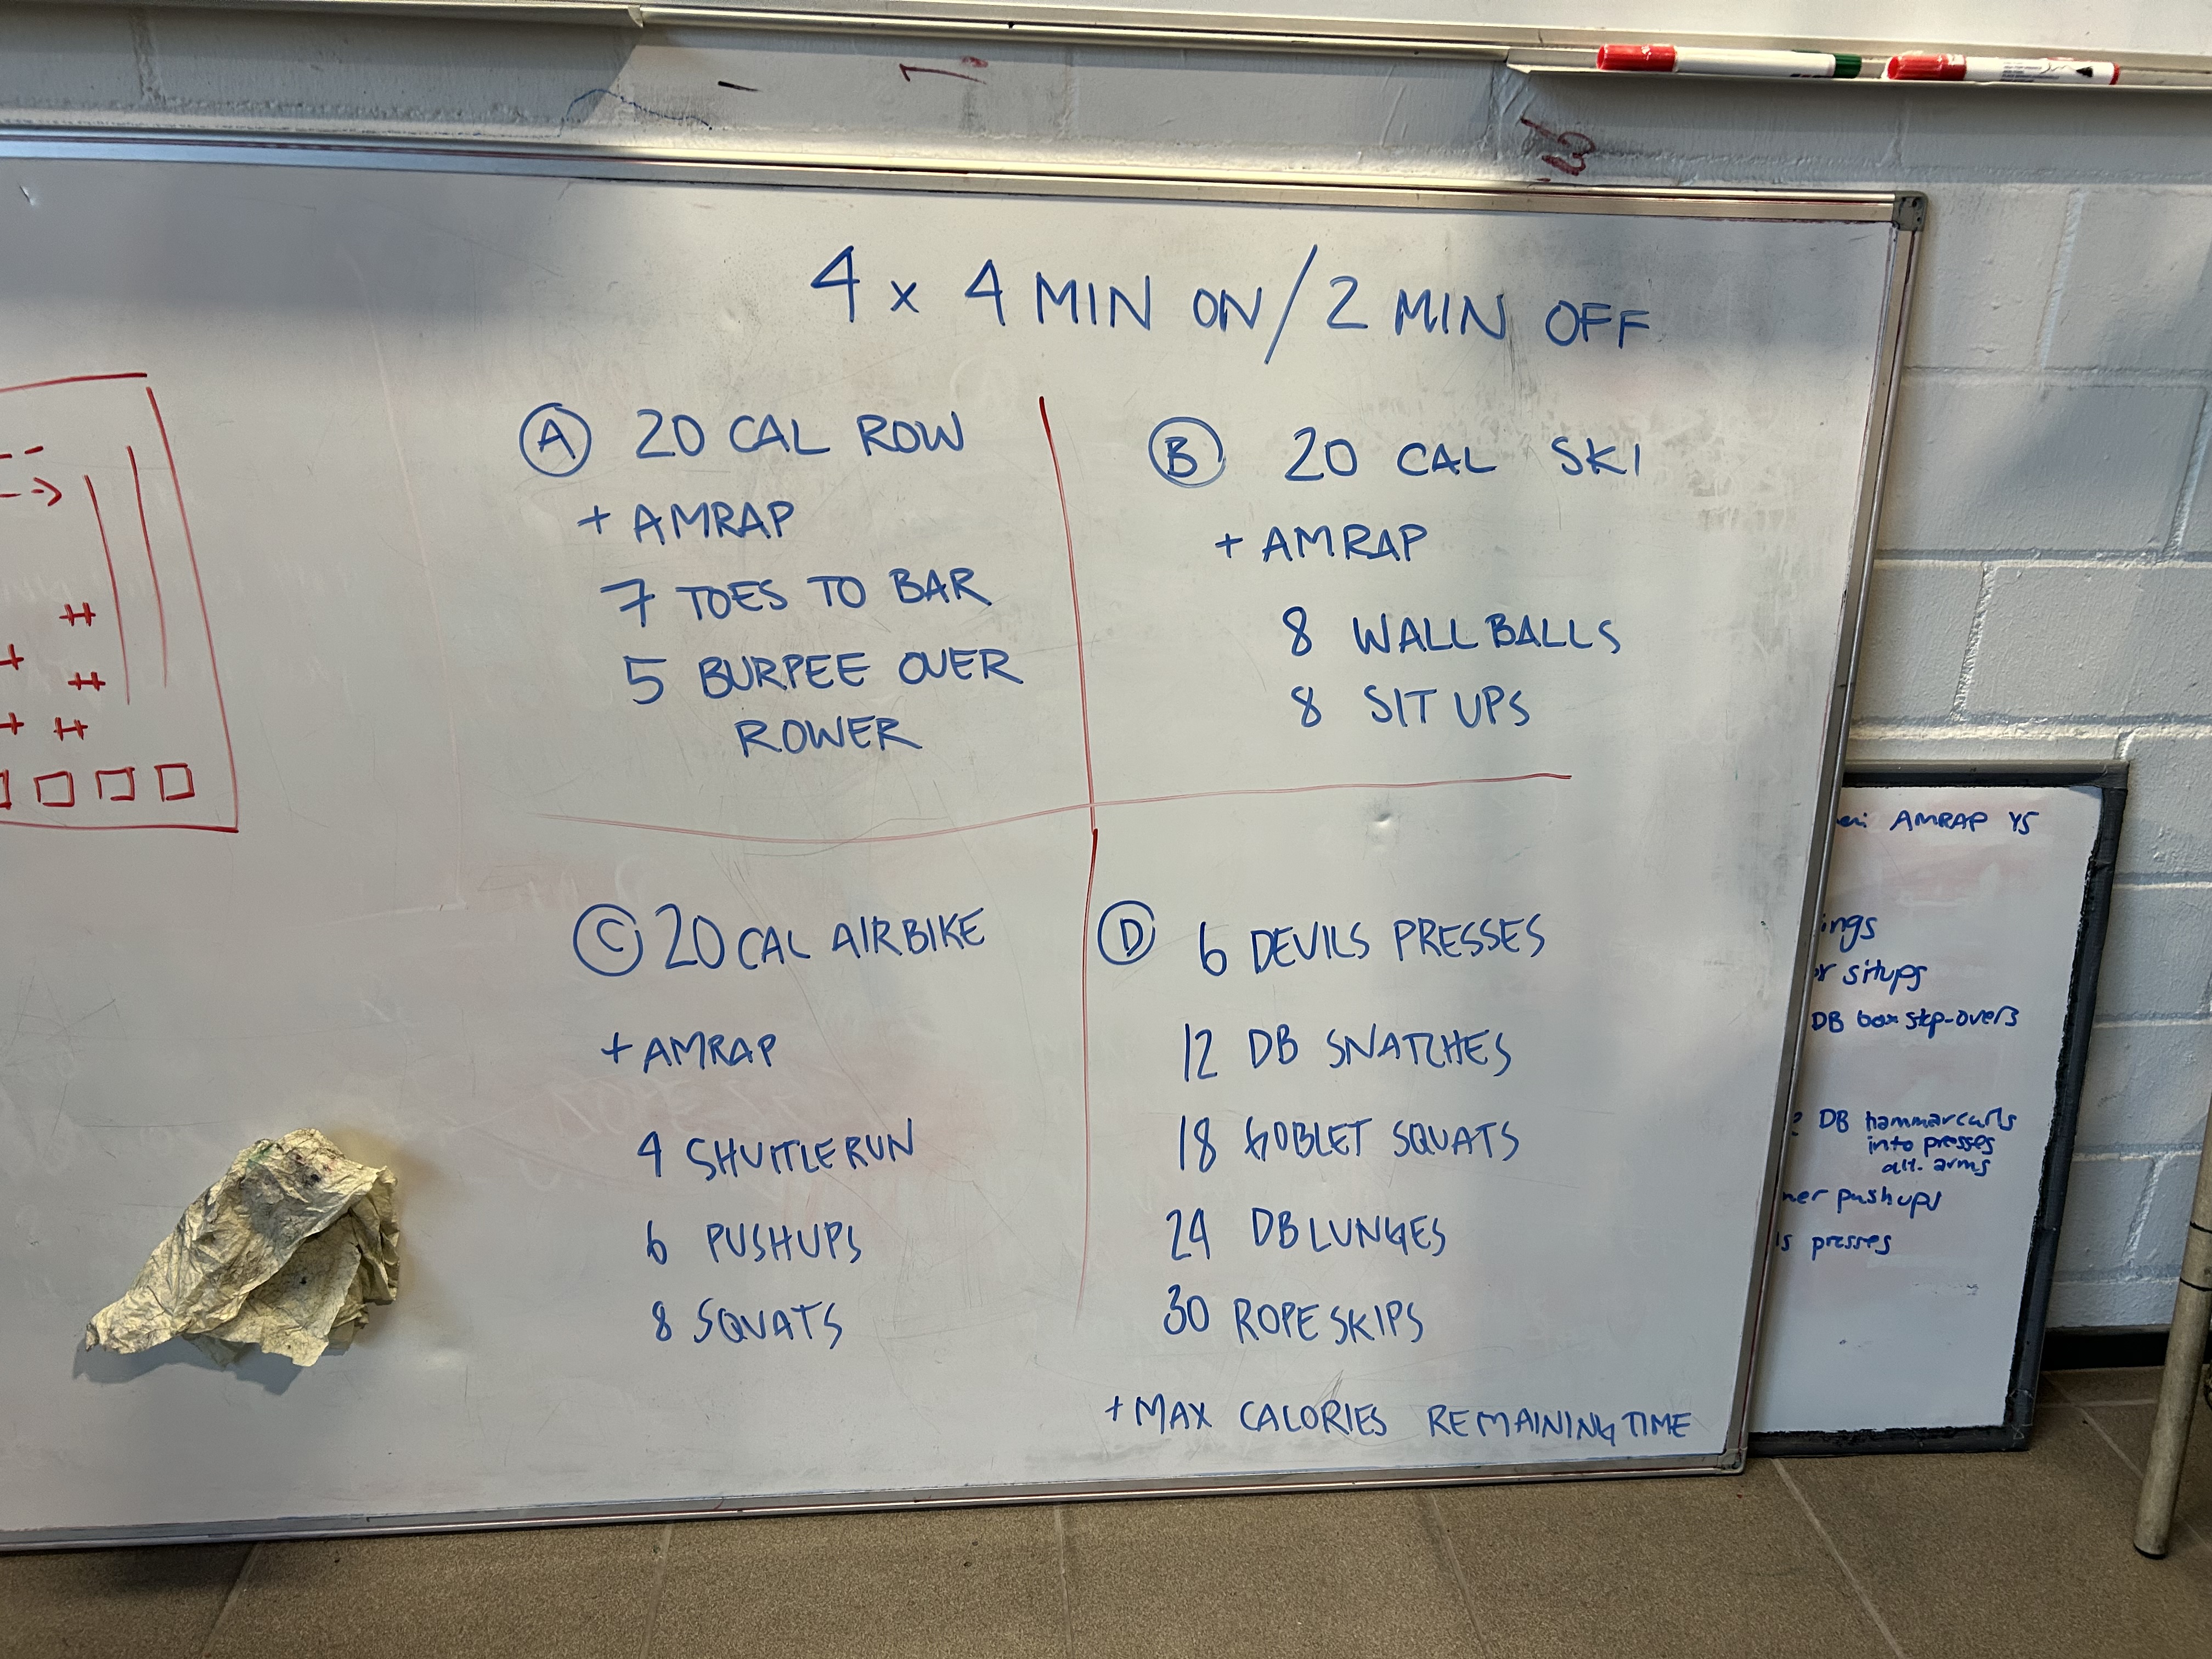 4 x 4 MIN ON / 2 MIN OFF
A 20 CAL ROW
+ AMRAP
7 TOES TO BAR
5 BURPEE OVER
ROWER
B 20 CAL SKI
+ AMRAP
8 WALL BALLS
8 SIT UPS
C 20 CAL AIRBIKE
+ AMRAP
4 SHUTTLE RUN
6 PUSHUPS
8 SQUATS
D 6 DEVILS PRESSES
12 DB SNATCHES
18 GOBLET SQUATS
24 DB LUNGES
30 ROPE SKIPS
+ MAX CALORIES REMAINING TIME
AMRAP
situps
DB box step-overs
DB hammarcurls
into presses
alt. arms
pushups
presses